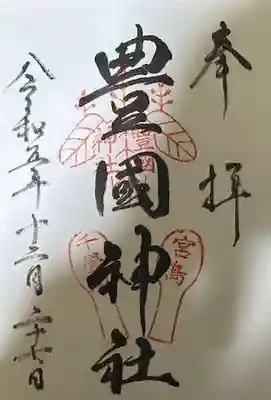 奉拝
豊國神社
令和五年十二月二十七日
宮島
千畳閣